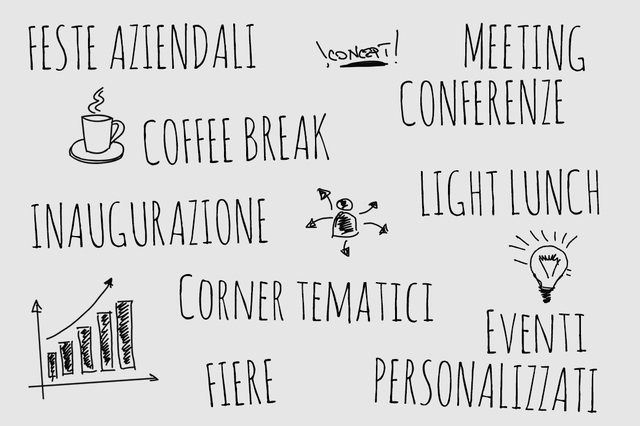 FESTE AZIENDALI
!CONCEPT!
MEETING
CONFERENZE
COFFEE BREAK
LIGHT LUNCH
INAUGURAZIONE
CORNER TEMATICI
EVENTI
PERSONALIZZATI
FIERE